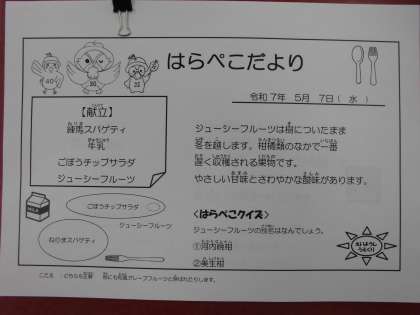 はらぺこだより
令和7年 5月 7日( 水 )
【献立】
練馬スパゲティ
牛乳
ごぼうチップサラダ
ジューシーフルーツ
ジューシーフルーツは樹についたまま
冬を越します。柑橘類のなかで一番
遅く収穫される果物です。
やさしい甘味とさわやかな酸味があります。
ごぼうチップサラダ
ジューシーフルーツ
ねりまスパゲティ
<はらぺこクイズ>
ジューシーフルーツの別名はなんでしょう。
①河内晩柑
②美生柑